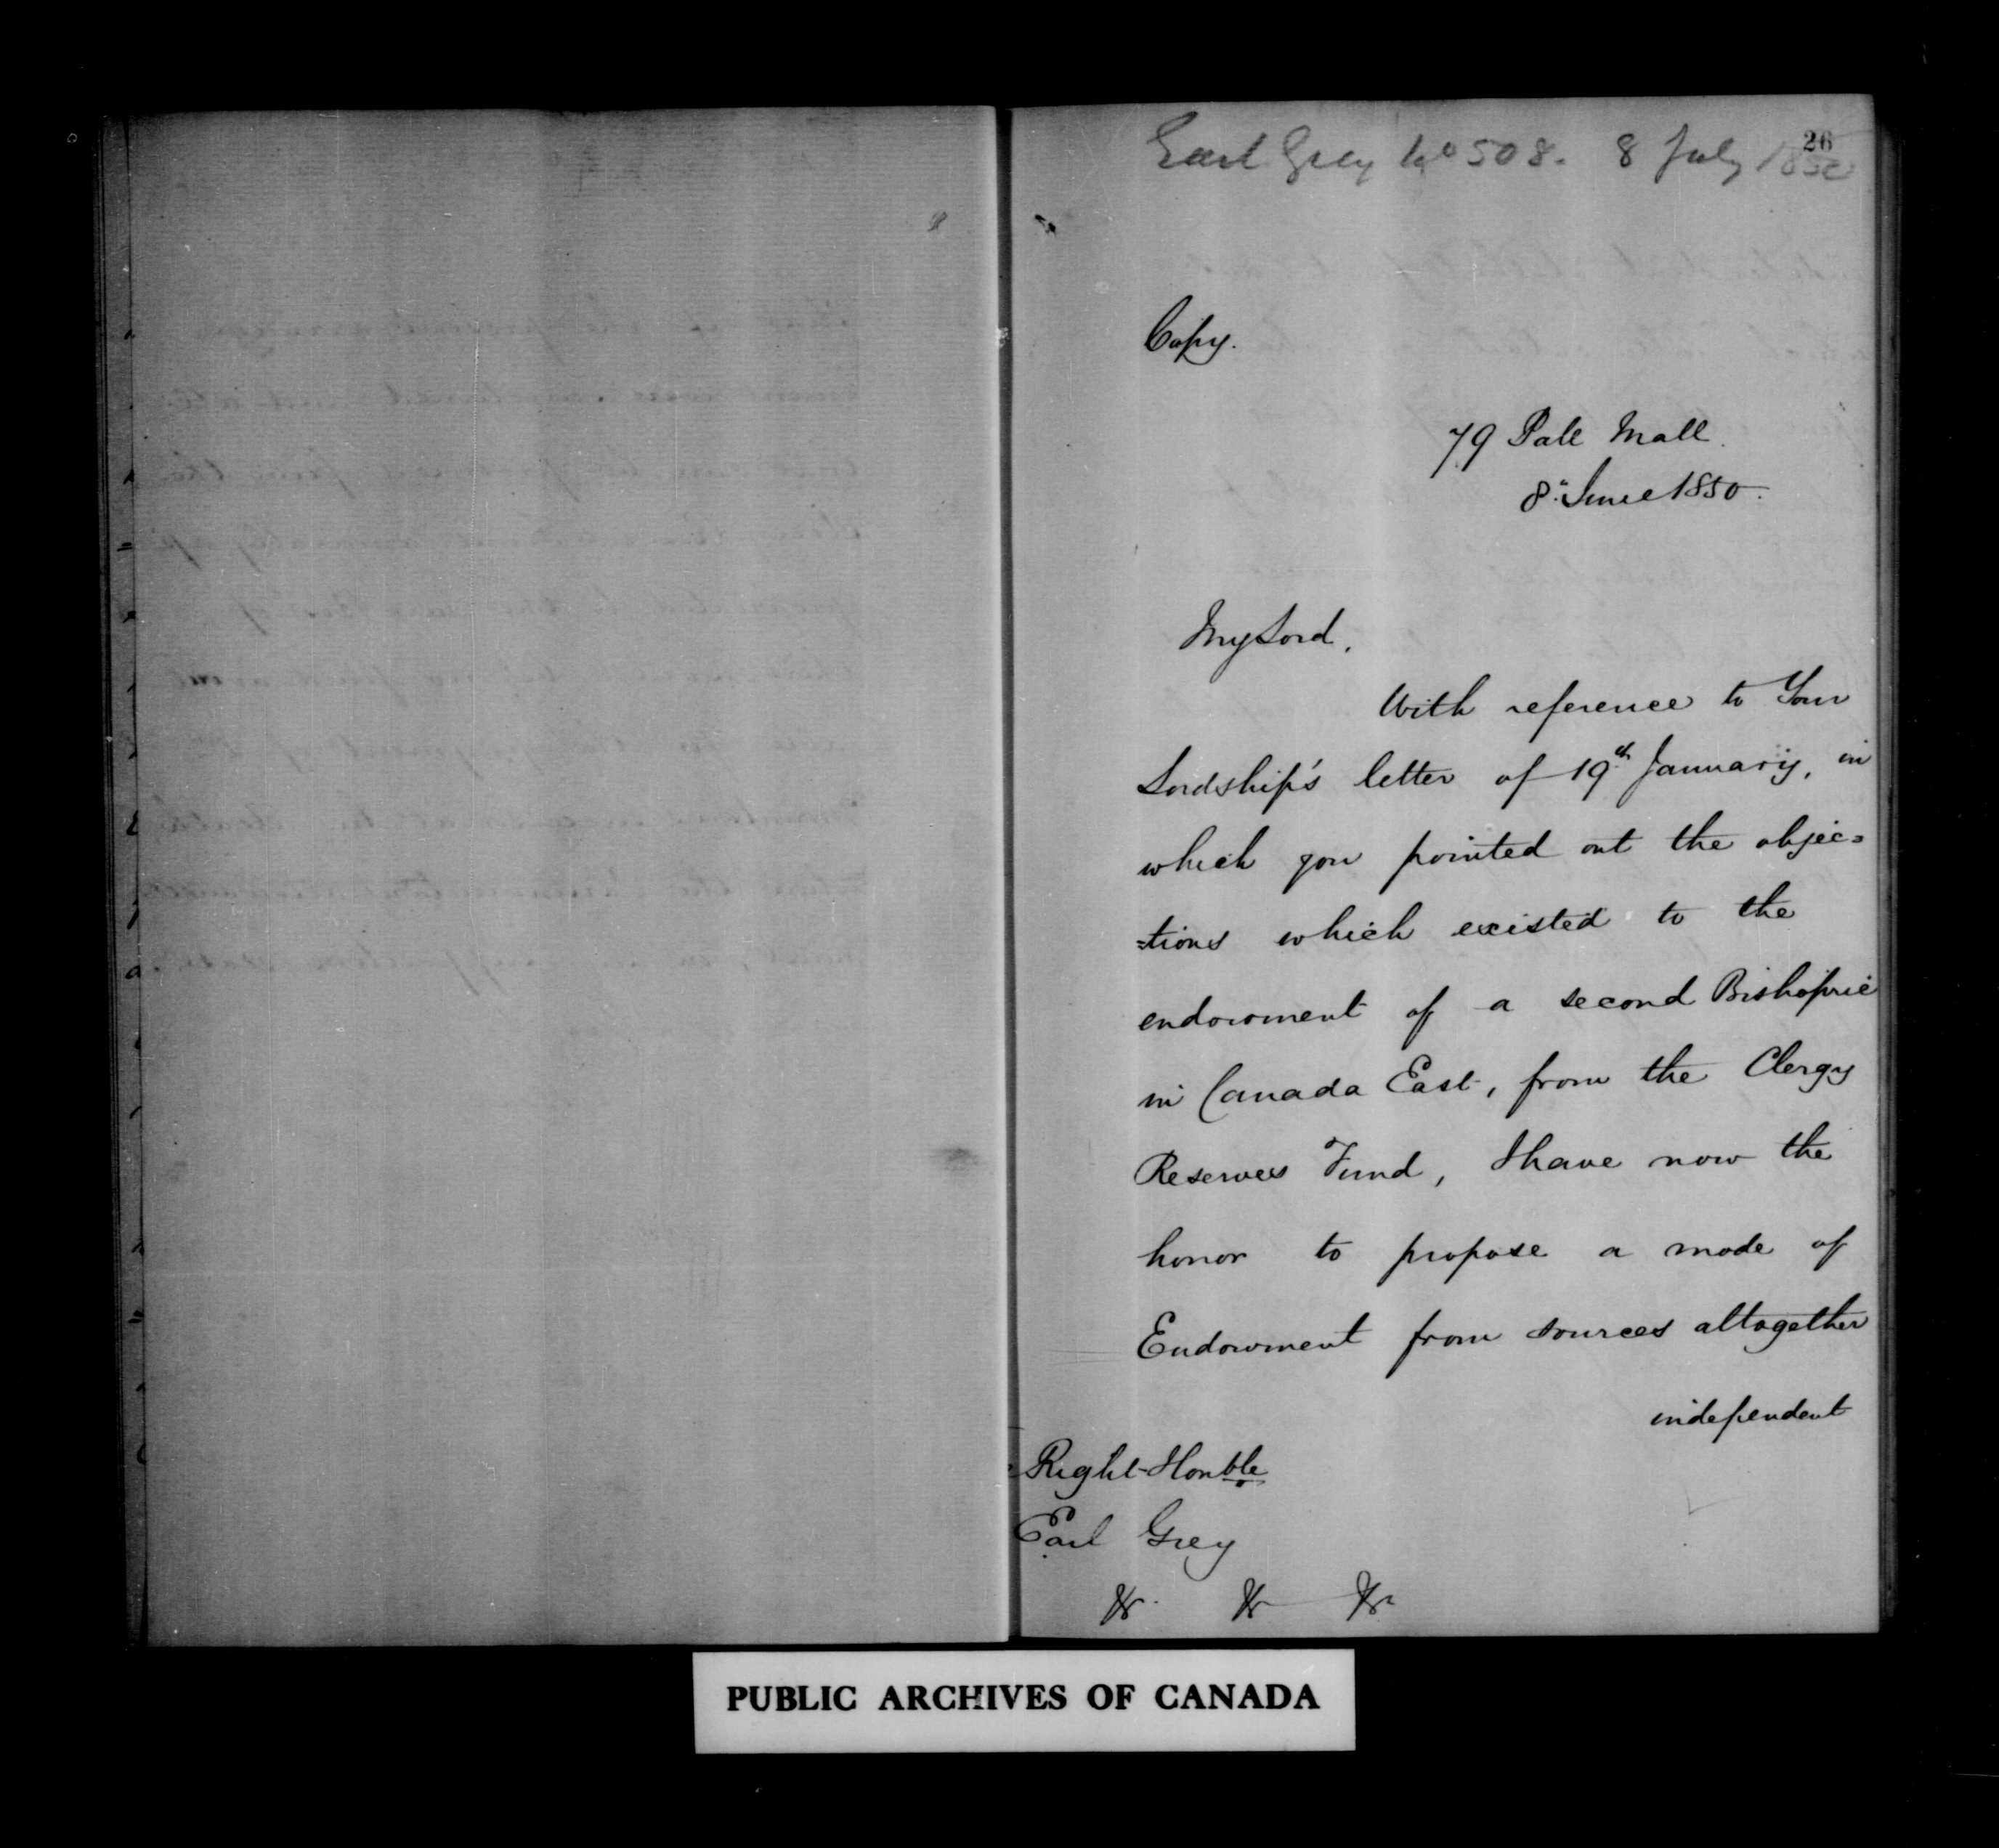 26
Earl Grey No 508. 8 July 1850
Copy.
79 Pall Mall.
8th June 1850.
My Lord,
With reference to Your
Lordship's letter of 19th January, in
which you pointed out the objec=
=tions which existed to the
endowment of a second Bishopric
in Canada East, from the Clergy
Reserves Fund, I have now the
honor to propose a mode of
Endowment from sources altogether
independent
Right Honble
Earl Grey
&c. &c &c
PUBLIC ARCHIVES OF CANADA